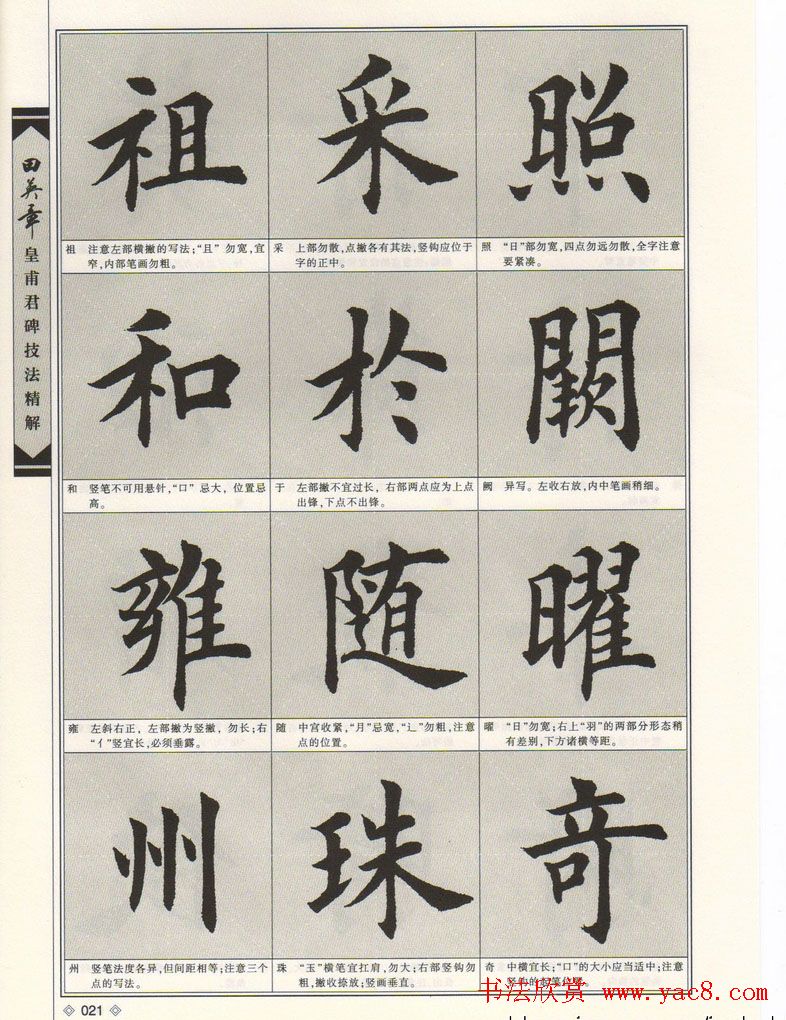 田英章
皇甫君碑技法精解
祖 采 照
祖 注意左部横撇的写法;“且”勿宽,宜
窄,内部笔画勿粗。
采 上部勿散,点撇各有其法,竖钩应位于
字的正中。
照 “日”部勿宽,四点勿远勿散,全字注意
要紧凑。
和 於 闕
和 竖笔不可用悬针,“口”忌大,位置忌
高。
于 左部撇不宜过长,右部两点应为上点
出锋,下点不出锋。
阙 异写。左收右放,内中笔画稍细。
雍 随 曜
雍 左斜右正,左部撇为竖撇,勿长;右
“亻”竖宜长,必须垂露。
随 中宫收紧,“月”忌宽,“辶”勿粗,注意
点的位置。
曜 “日”勿宽;右上“羽”的两部分形态稍
有差别,下方诸横等距。
州 珠 奇
州 竖笔法度各异,但间距相等;注意三个
点的写法。
珠 “玉”横笔宜扛肩、勿大;右部竖钩勿
粗,撇收捺放;竖画垂直。
奇 中横宜长;“口”的大小应当适中;注意
书法欣赏 www.yac8.com
021